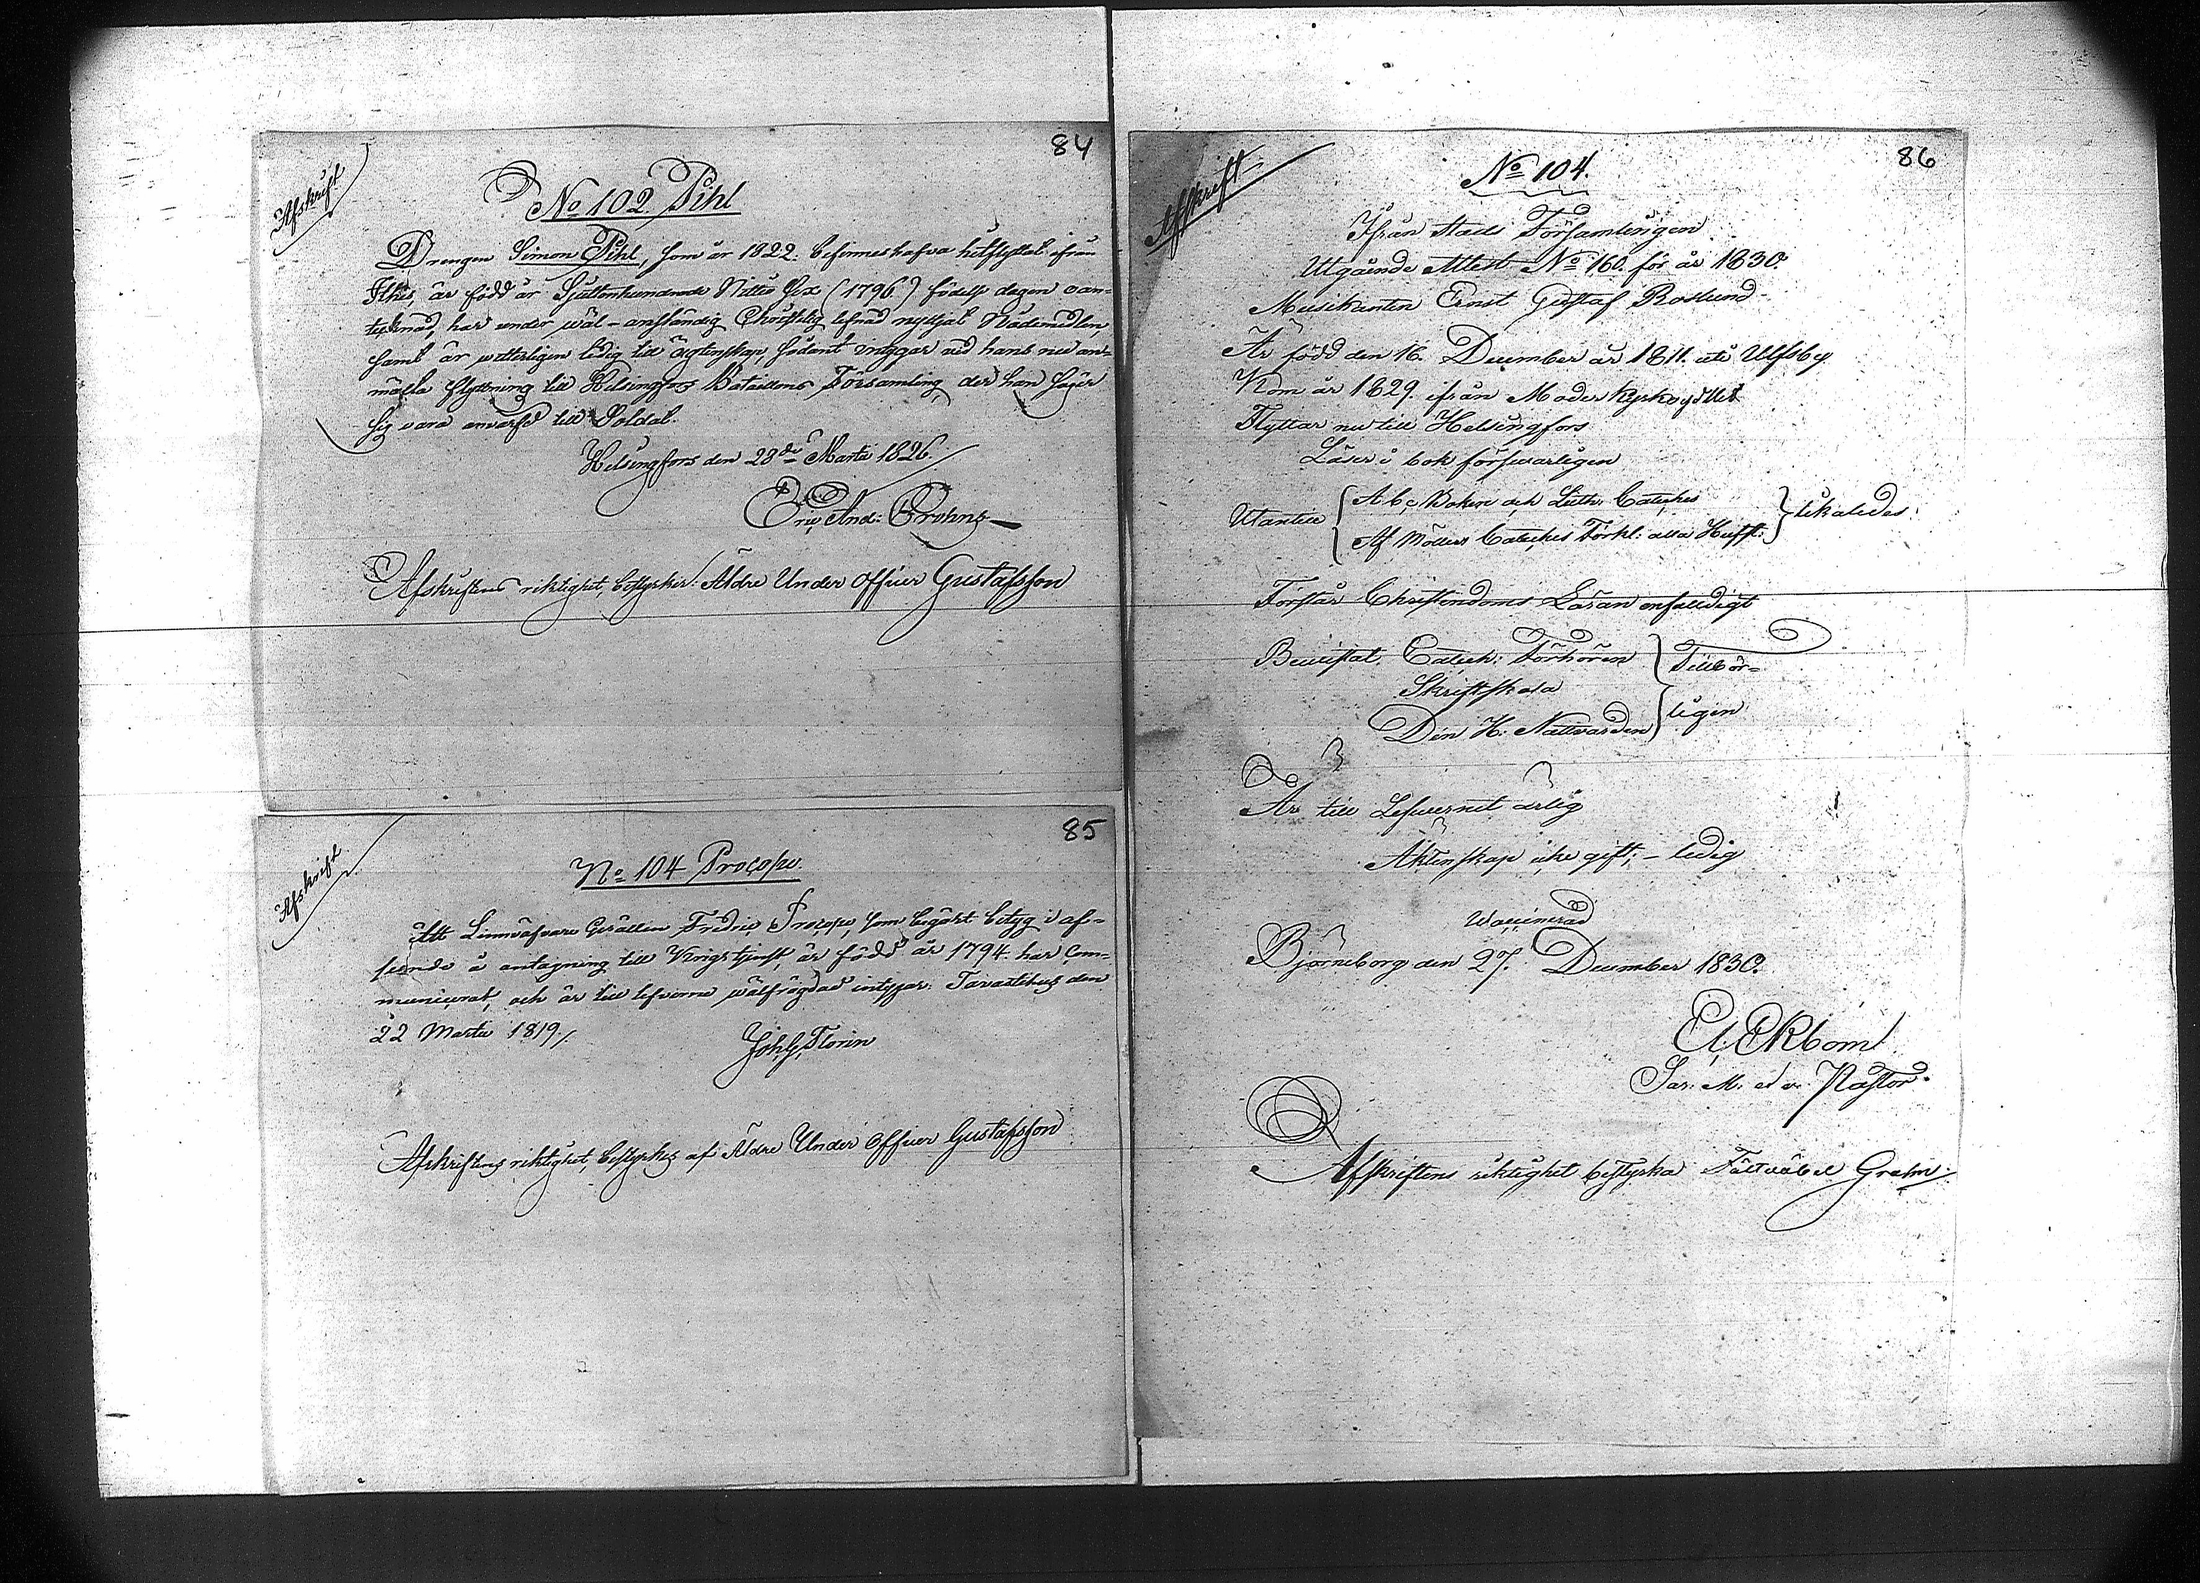 84
Afskrift
No 102 Pihl
Drengen Simon Pihl, som år 1822. befinnes hafva hitflyttat ifrån
är född år Sjuttonhundrade Nittio Sex (1796.) födelse dagen oan-
teknad, har under wäl-anständig Christelig lefnad nyttjat Nådemedlen,
samt är witterligen ledig till ägtenskap, sådant intygar wid hans nu an-
mälta flyttning till Helsingfors Bataillons Församling, der han säger
sig vara anvärfd till Soldat.
Helsingfors den 28de Martii 1826.
Eric And: Crohns
Afskriftens riktighet, bestyrker Äldre Under Officer Gustafsson
85
Afskrift
No 104 Procope
Att Linnväfvare Gesällen Fredric Procope, som begärt betyg i af-
seende å antagning till Krigstjenst, är född år 1794. har Com-
municerat, och är till lefverne wälfrägdad intygar. Tavastehus den
22 Martii 1819.
Joh. G. Florin
Afskriftens riktighet, bestyrkes af Äldre Under Officer Gustafsson
86
Afskrift
No 104.
Ifrån Stads Församlingen
Utgående Attest No 160. för år 1830.
Musikanten Ernst Gustaf Roslund
Är född den 16. December år 1811. uti Ulfsby
Kom år 1829. ifrån Moderkyrko
Flyttar nu till Helsingfors
Läser i bok försvarligen
Utantill A b c Boken och Luth. Cateches
Af Möllers Cateches Förkl: alla Hufst: likaledes
Förstår Christendoms Läran enfaldigt
Bevistat Catech: Förhören Tillbör-
Skriftskola
Den H: Nattvarden ligen
Är till Lefvernet ärlig
Äktenskap icke gift; - ledig
Waccinerad
Björneborg den 27. December 1830.
Ekbom
Sac: M: ad v. Pastor.
Afskriftens riktighet bestyrka Fältväbel Grahn.